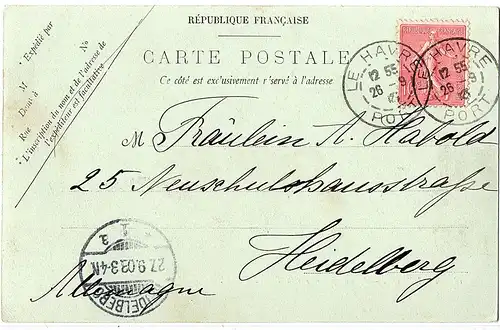 RÉPUBLIQUE FRANÇAISE
CARTE POSTALE
Ce côté est exclusivement réservé à l'adresse
Expédié par
M
Demeurant à
Rue No
L'inscription du nom et de l'adresse de
l'expéditeur est facultative
LE HAVRE
12 55
26 9
PORT
LE HAVRE
12 55
26 9
PORT
M Fräulein A. Habold
25 Neuschulhausstraße
Heidelberg
Allemagne
HEIDELBERG
27.9.03.3-4N
1